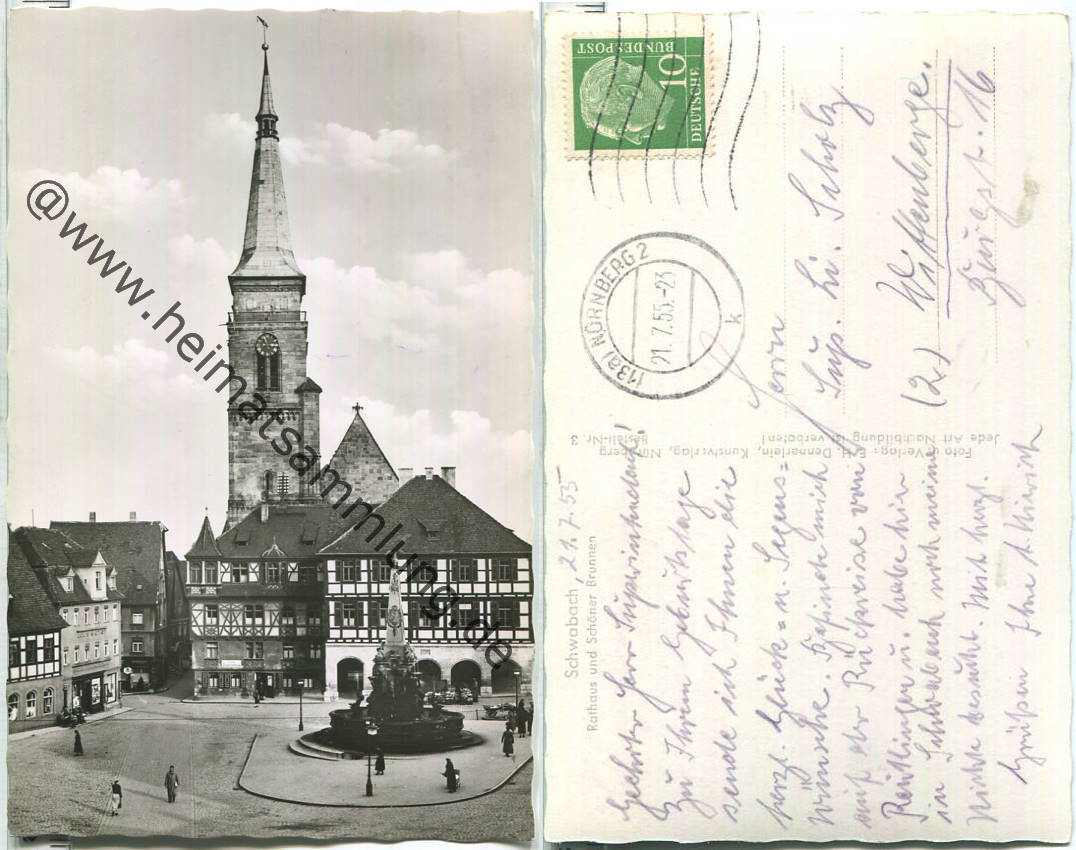 @www.heimatsammlung.de
DEUTSCHE
BUNDESPOST
10
(13a) NÜRNBERG 2
21.7.55.-23
k
Schwabach, 21.7.55
Rathaus und Schöner Brunnen
Geehrter Herr Superintendent!
Zu Ihrem Geburtstage
sende ich Ihnen die
herzl. Glück- u. Segens=
wünsche.        mich
auf der Rückreise von
Reutlingen u. habe hier
in Schwabach noch meine
Nichte besucht. Mit herzl.
Grüßen Ihre
Foto u. Verlag: E. H. Dennerlein, Kunstverlag, Nürnberg
Jede Art Nachbildung ist verboten!
Bestell-Nr. 3
Herrn
Sup. Li. Scholz
(2) Wittenberge.
Burgst. 16